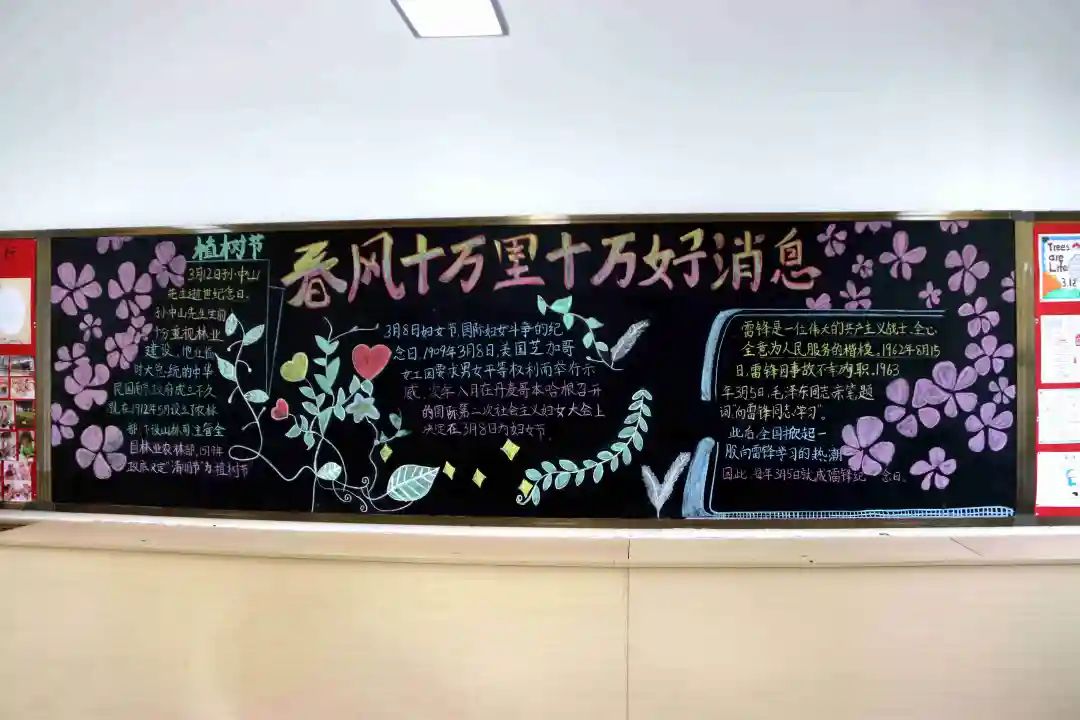 春风十万里十万好消息
植树节
3月12日孙中山
先生逝世纪念日。
孙中山先生生前
十分重视林业
建设。他任临
时大总统的中华
民国南京政府成立不久
就在1912年5月设立了农林
部,下设山林司主管全
国林业
3月8日妇女节,国际妇女斗争的纪
念日,1909年3月8日,美国芝加哥
女工因要求男女平等权利而举行示
威,次年八月在丹麦哥本哈根召开
的国际第二次社会主义妇女大会上
决定在3月8日为妇女节.
雷锋是一位伟大的共产主义战士,全心
全意为人民服务的楷模。1962年8月15
日,雷锋因事故不幸殉职,1963
年3月5日,毛泽东同志亲笔题
词“向雷锋同志学习”。
此后,全国掀起一
股向雷锋学习的热潮
因此,每年3月5日就成雷锋纪念日。
Trees
are
3.12